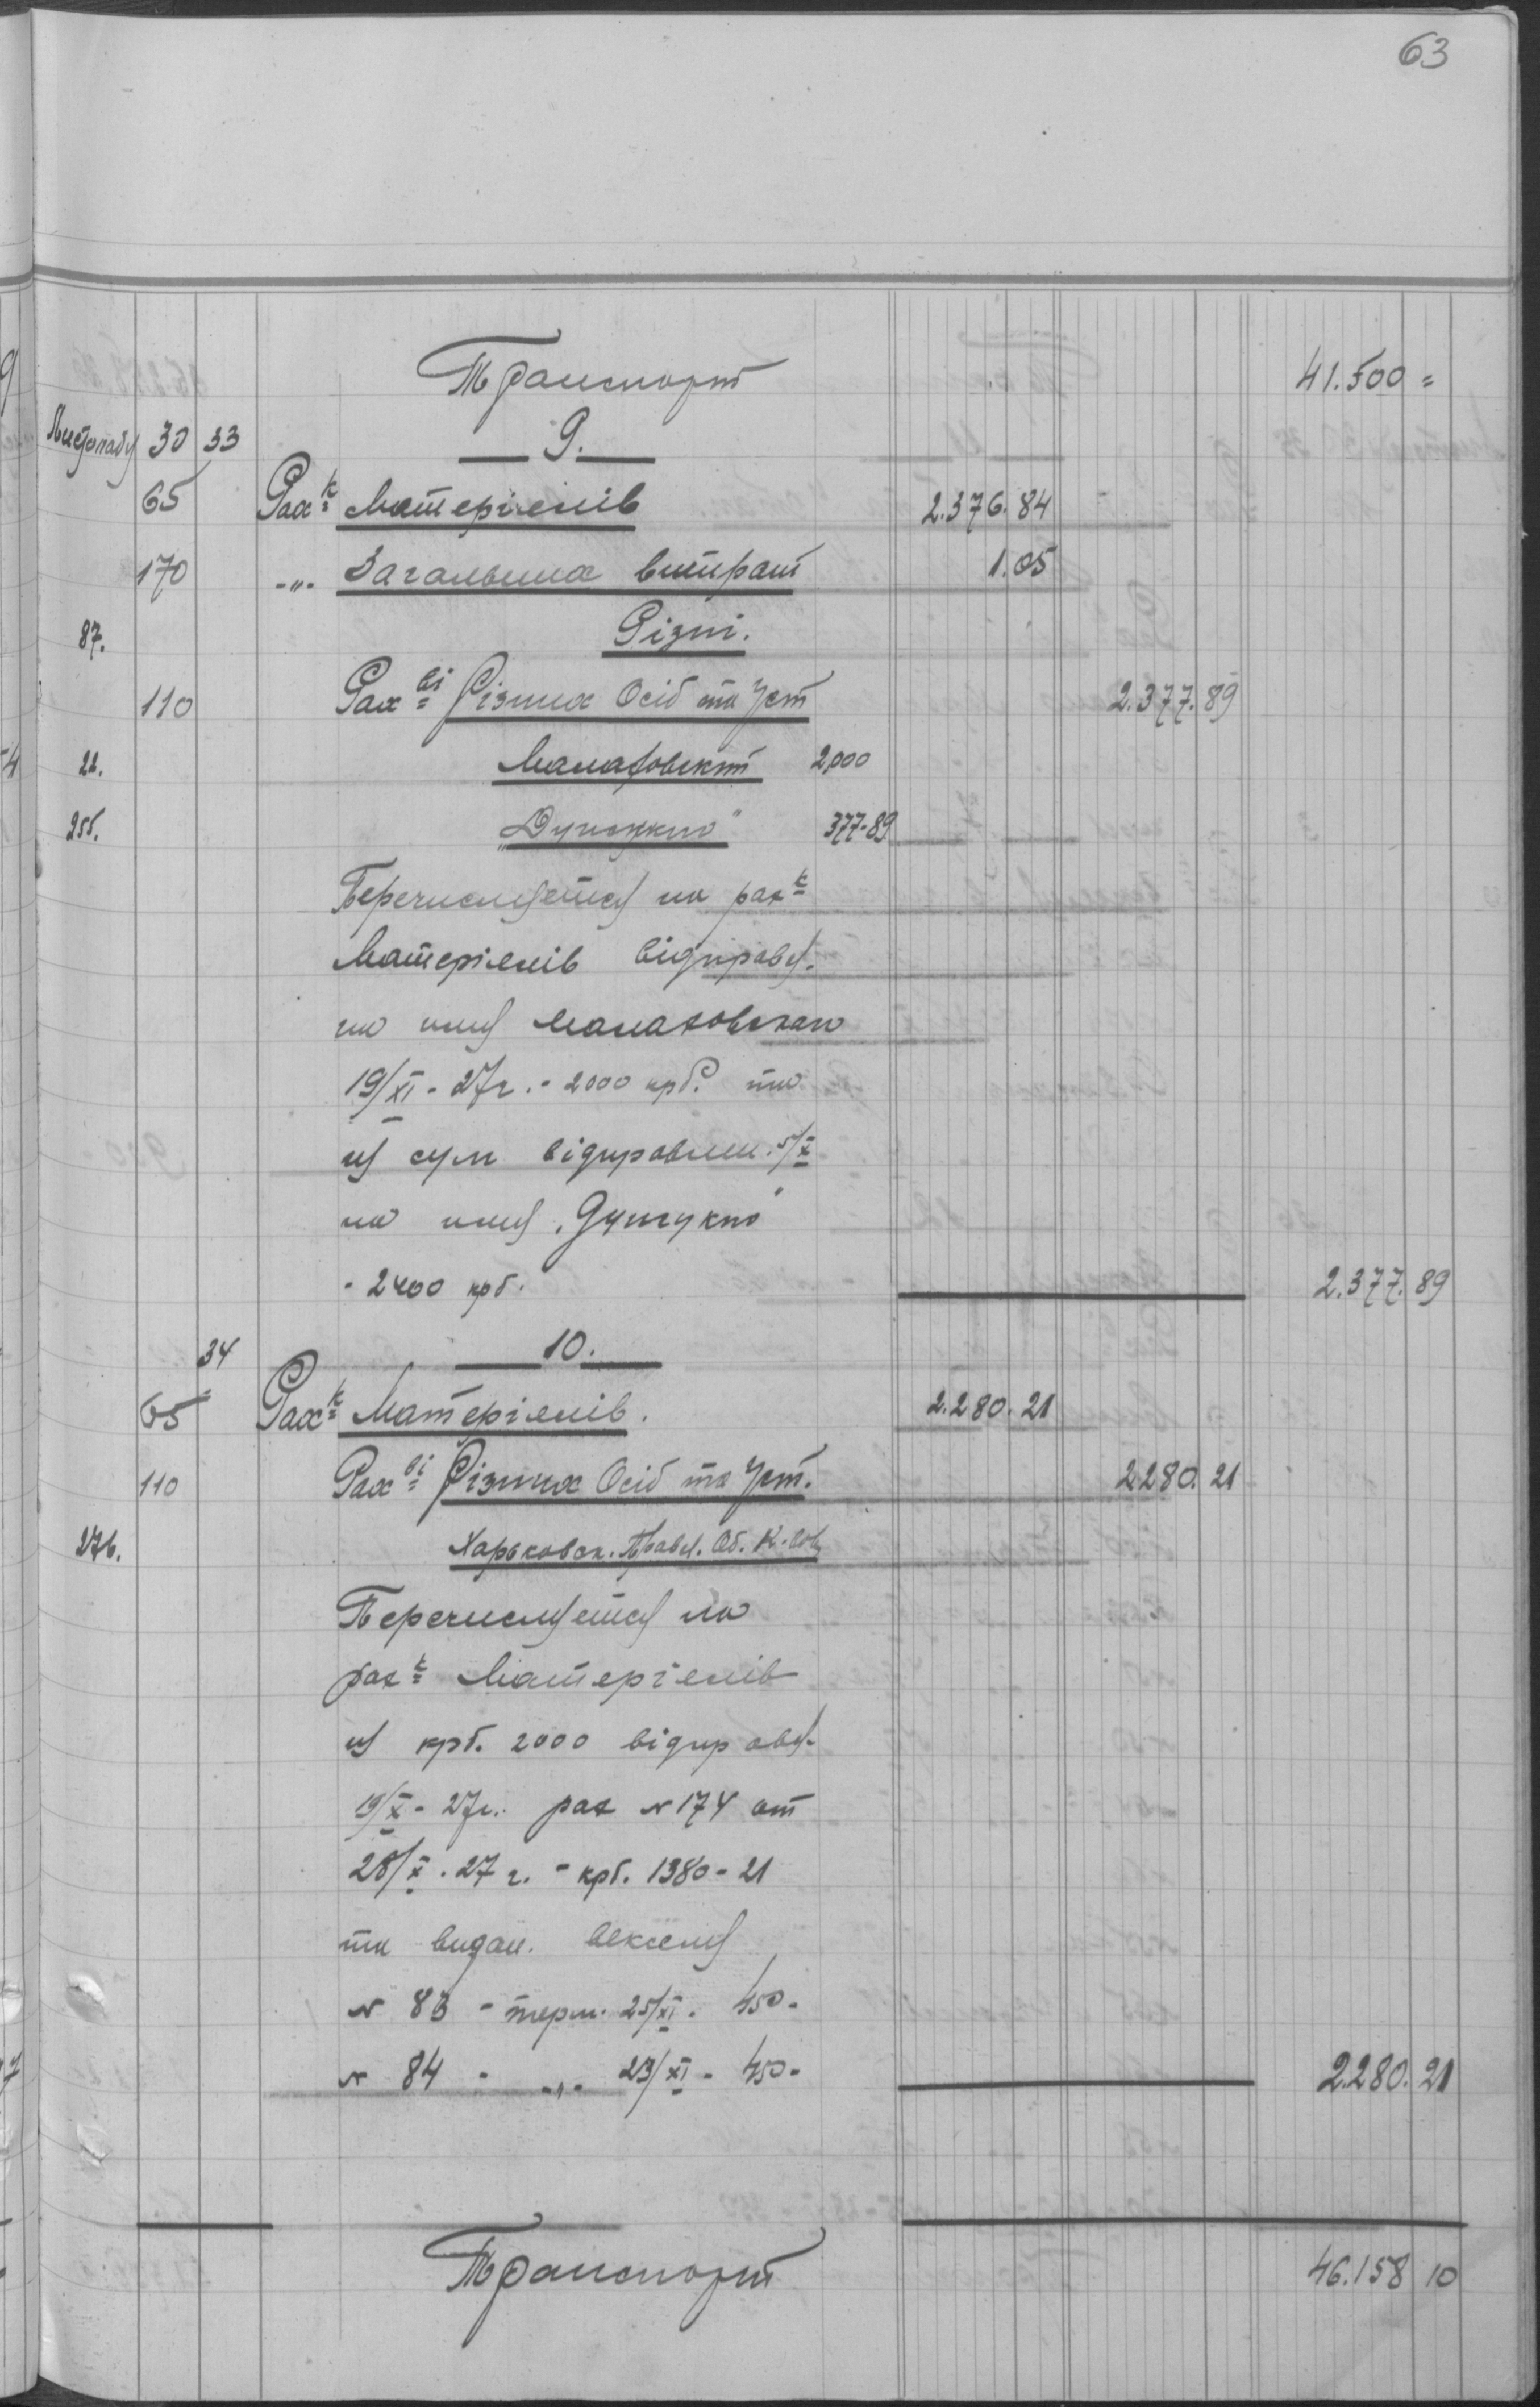 63
Транспорт 41.500 =
Листопаду 30 33 9.
65 Рах-к Матеріялів 2.376.84
170 -„- Загальних витрат 1.05
87. Різні.
110 Рах-ві Різних Осіб та Уст 2.377.89
22. 2,000
255. 377-89
Перечисляется на рах-к
Матеріялів відправл.
на имя
19/XI - 27 г. - 2000 крб. та
из сум відправлен. 5/X
на имя
- 2400 крб. 2.377.89
34 10.
65 Рах-к Матеріялів. 2.280.21
110 Рах-ві Різних Осіб та Уст. 2280.21
276. Харьковск. Правл. Об. К.
Перечисляется на
рах-к Матеріялів
из крб. 2000 відправл.
19/X - 27 г. рах № 174 от
28/X . 27 г. - крб. 1380 - 21
та видан. векселя
№ 83 - терм. 25/XI . 450 -
№ 84 - -„- 23/XI - 450 - 2.280.21
Транспорт 46.158 10